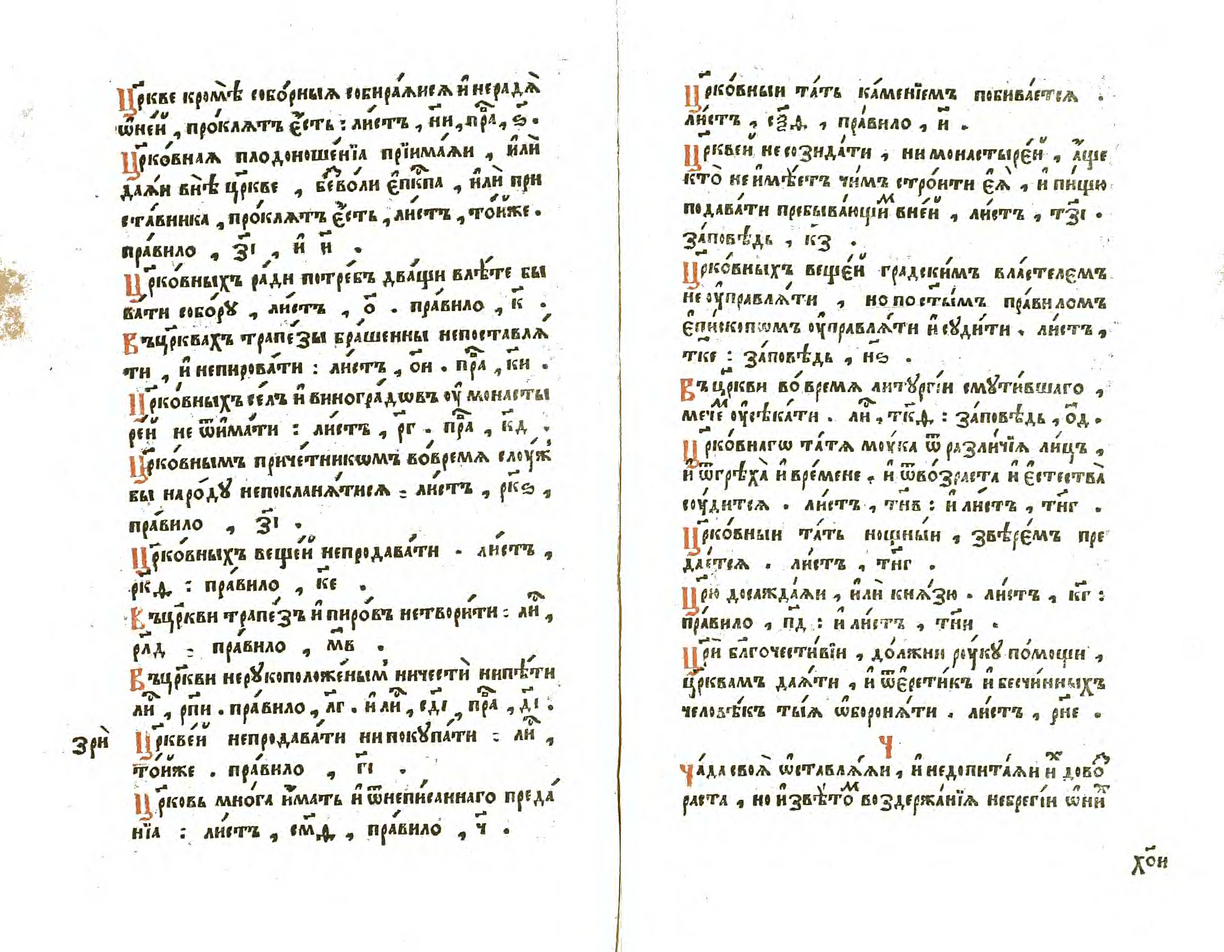 Цр҃кве кромѣ̀ собо́рныѧ собира́ѧисѧ и҆ нерадѧ̀
ѡ҆не́й , про́клѧтъ є҆́сть : ли́стъ , н҃и , пра̑ , ѕ҃ .
Цр҃ко́внаѧ плодоноше́нїѧ прїима́ѧи , и҆лѝ
даѧ́и внѣ̀ цр҃кве , беⷥво́ли є҆пⷭ҇кпа , и҆лѝ при
ста́вника , про́клѧтъ є҆́сть , ли́стъ , то́йже .
пра́вило , з҃і , и҆ и҃ .
Цр҃ко́вныхъ ра́ди потре́бъ два́щи влѣ́те бы
ва́ти собо́ру , ли́стъ , о҃ . пра́вило , к҃ .
Въцр҃квахъ трапе́зы бра́шенны непоставлѧ́
ти , и҆ непирова́ти : ли́стъ , о҃и . пра̑ , к҃и .
Цр҃ко́вныхъ се́лъ и҆ виногра́дѡвъ оу҆ монасты
ре́й не ѿима́ти : ли́стъ , р҃г . пра̑ , к҃д .
Цр҃ко́внымъ приче́тникѡмъ во́времѧ слоу́ж
бы наро́дꙋ непоклана́тисѧ : ли́стъ , рк҃ѕ ,
пра́вило , з҃і .
Цр҃ко́вныхъ веще́й непродава́ти . ли́стъ ,
рк҃д : пра́вило , к҃е .
Въцр҃кви трапе́зъ и҆ пиро́въ нетвори́ти : лиⷭ҇ ,
рл҃д : пра́вило , м҃в .
Въцр҃кви нерꙋкоположе́нымъ ничестѝ нипѣ́ти
лиⷭ҇ , рп҃и . пра́вило , л҃г . и҆ лиⷭ҇ , сд҃і , пра̑ , д҃і .
зрѝ
Цр҃кве́й непродава́ти ни покꙋпа́ти : лиⷭ҇ ,
то́йже . пра́вило , г҃і .
Цр҃ковь мно́га и҆́мать и҆ ѿнепи́саннаго преда́
нїѧ : ли́стъ , см҃д , пра́вило , ч҃ .
Цр҃ко́вныи та́ть ка́менїемъ побива́етсѧ .
ли́стъ , сѯ҃д , пра́вило , и҃ .
Цр҃кве́й не созида́ти , ни монастыре́й , а҆́ще
кто̀ не и҆мѣ́етъ чи́мъ стро́ити є҆ѧ̀ , и҆ пи́щю
подава́ти пребыва́ющиⷨ вне́й , ли́стъ , тз҃і .
за́повѣдь , к҃з .
Цр҃ко́вныхъ веще́й градски́мъ власте́лемъ
не оу҆правлѧ́ти , но по ст҃ы́мъ пра́виломъ
є҆пи́скопѡмъ оу҆правлѧ́ти и҆ сꙋди́ти . ли́стъ ,
тк҃е : за́повѣдь , н҃ѕ .
Въ цр҃кви во́ времѧ литꙋргі́и смꙋти́вшаго ,
мече́ⷨ оу҆сѣка́ти . лиⷭ҇ , тк҃д : за́повѣдь , о҃д .
Цр҃ко́внагѡ та́тѧ моу́ка ѿ разли́чїѧ ли́цъ ,
и҆ ѿгрѣха̀ и҆ вре́мене , и҆ ѿво́зраста и҆ є҆стества̀
соу́дитсѧ . ли́стъ , тн҃в : и҆ ли́стъ , тн҃г .
Цр҃ко́вныи та́ть нощны́и , звѣре́мъ пре
дае́тсѧ . ли́стъ , тн҃г .
Цр҃ю досажда́ѧи , и҆лѝ кнѧ́зю . ли́стъ , к҃г :
пра́вило , п҃д : и҆ ли́стъ , тн҃и .
Цр҃и́ бл҃гочести́вїи , до́лжни роу́кꙋ по́мощи ,
цр҃квамъ даѧ́ти , и҆ ѿє҆рети́къ и҆ бесчи́нныхъ
человѣ́къ ты́ѧ ѡ҆боронѧ́ти . ли́стъ , рн҃е .
Ч
Ча́да своѧ̀ ѡ҆ставлѧ́ѧи , и҆ недопита́ѧи и҆ⷯ довоⷥ
раста , но и҆звѣ́тоⷨ воздержа́нїѧ небрегі́и ѡ҆ниⷯ
хо҃и